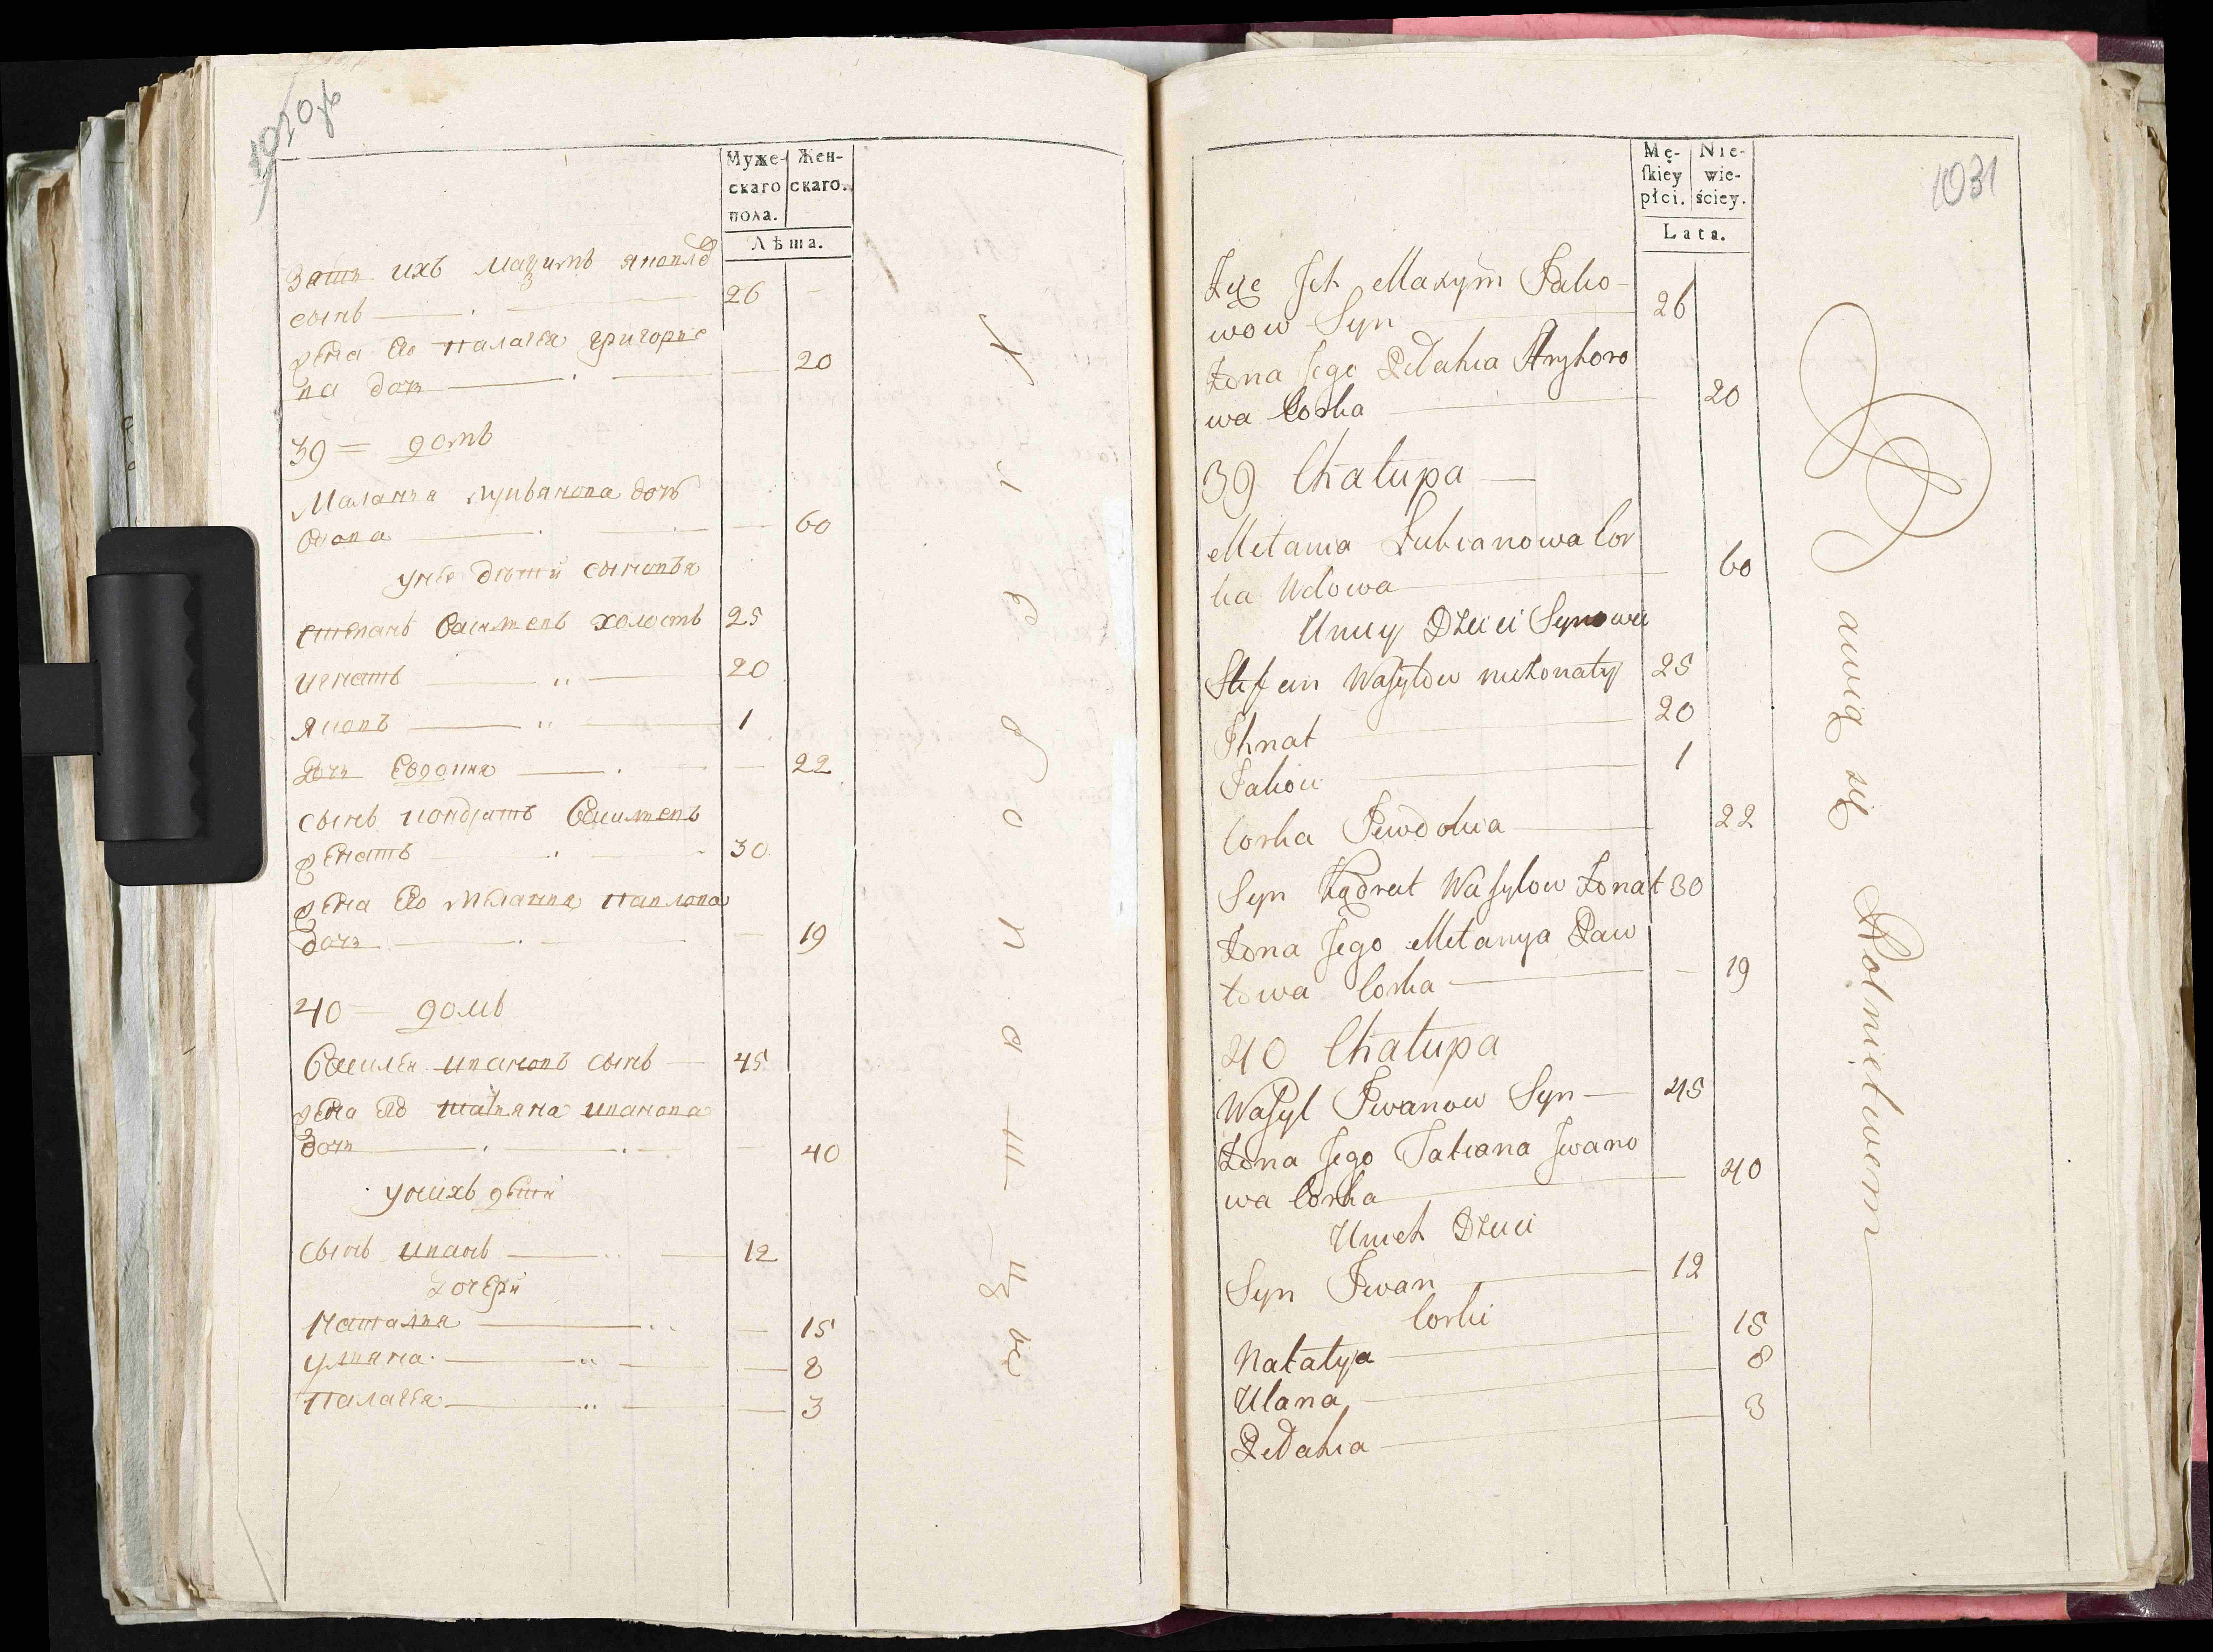 1030 об
Муже-
скаго
пола.
Жен-
скаго.
Лѣта.
Зять ихъ Мазимъ яковлѣ
сынъ 26
жена Его палагѣя григорье
ва дочь 20
39 = домъ
Маланья лукьянова дочь
вдова 60
унее дѣти сыновья
степанъ Василевъ холостъ 25
игнатъ 20
яковъ 1
Дочь Евдокия 22
сынъ кондратъ Василевъ
женатъ 30
жена Его мелания павлова
дочь 19
40 = домъ
Василѣй ивановъ сынъ 45
жена Его татьяна иванова
дочь 40
унихъ дѣти
сынъ иванъ 12
дочери
наталия 15
улияна 8
палагѣя 3
1031
Mę-
skiey
płci.
Nie-
wie-
ściey.
Lata.
Zięc Ich Maxym Jako-
wow Syn 26
Żona Jego Pełahia Hryhoro
wa Corka 20
39 Chałupa
Mełania Łukianowa Cor
ka Wdowa 60
U niey Dzieci Synowie
Stefan Wasylow nieżonaty 25
Ihnat 20
Jakow 1
Corka Jewdokia 22
Syn Kądrat Wasylow Żonat 30
Żona Jego Mełanya Paw
łowa Corka 19
40 Chałupa
Wasyl Iwanow Syn 45
Żona Jego Tatiana Iwano
wa Corka 40
U nich Dzieci
Syn Iwan 12
Corki
Natalya 15
Ulana 8
Pełahia 3
bawią się Rolnictwem